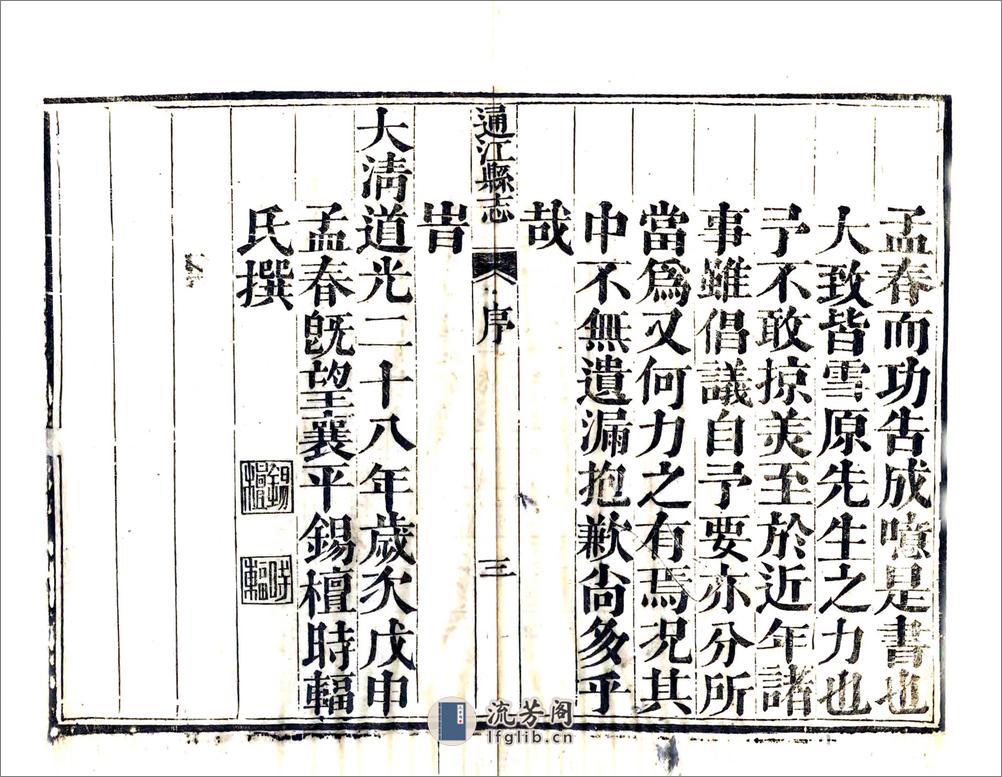 孟春而功告成噫是書也
大致皆雪原先生之力也
予不敢掠美至於近年諸
事雖倡議自予要亦分所
當爲又何力之有焉况其
中不無遺漏抱歉尙多乎
哉
通江縣志
序
三
旹
大淸道光二十八年歲次戊申
孟春旣望襄平錫檀時輻
氏撰
錫檀
時輻
流芳阁
lfglib.cn